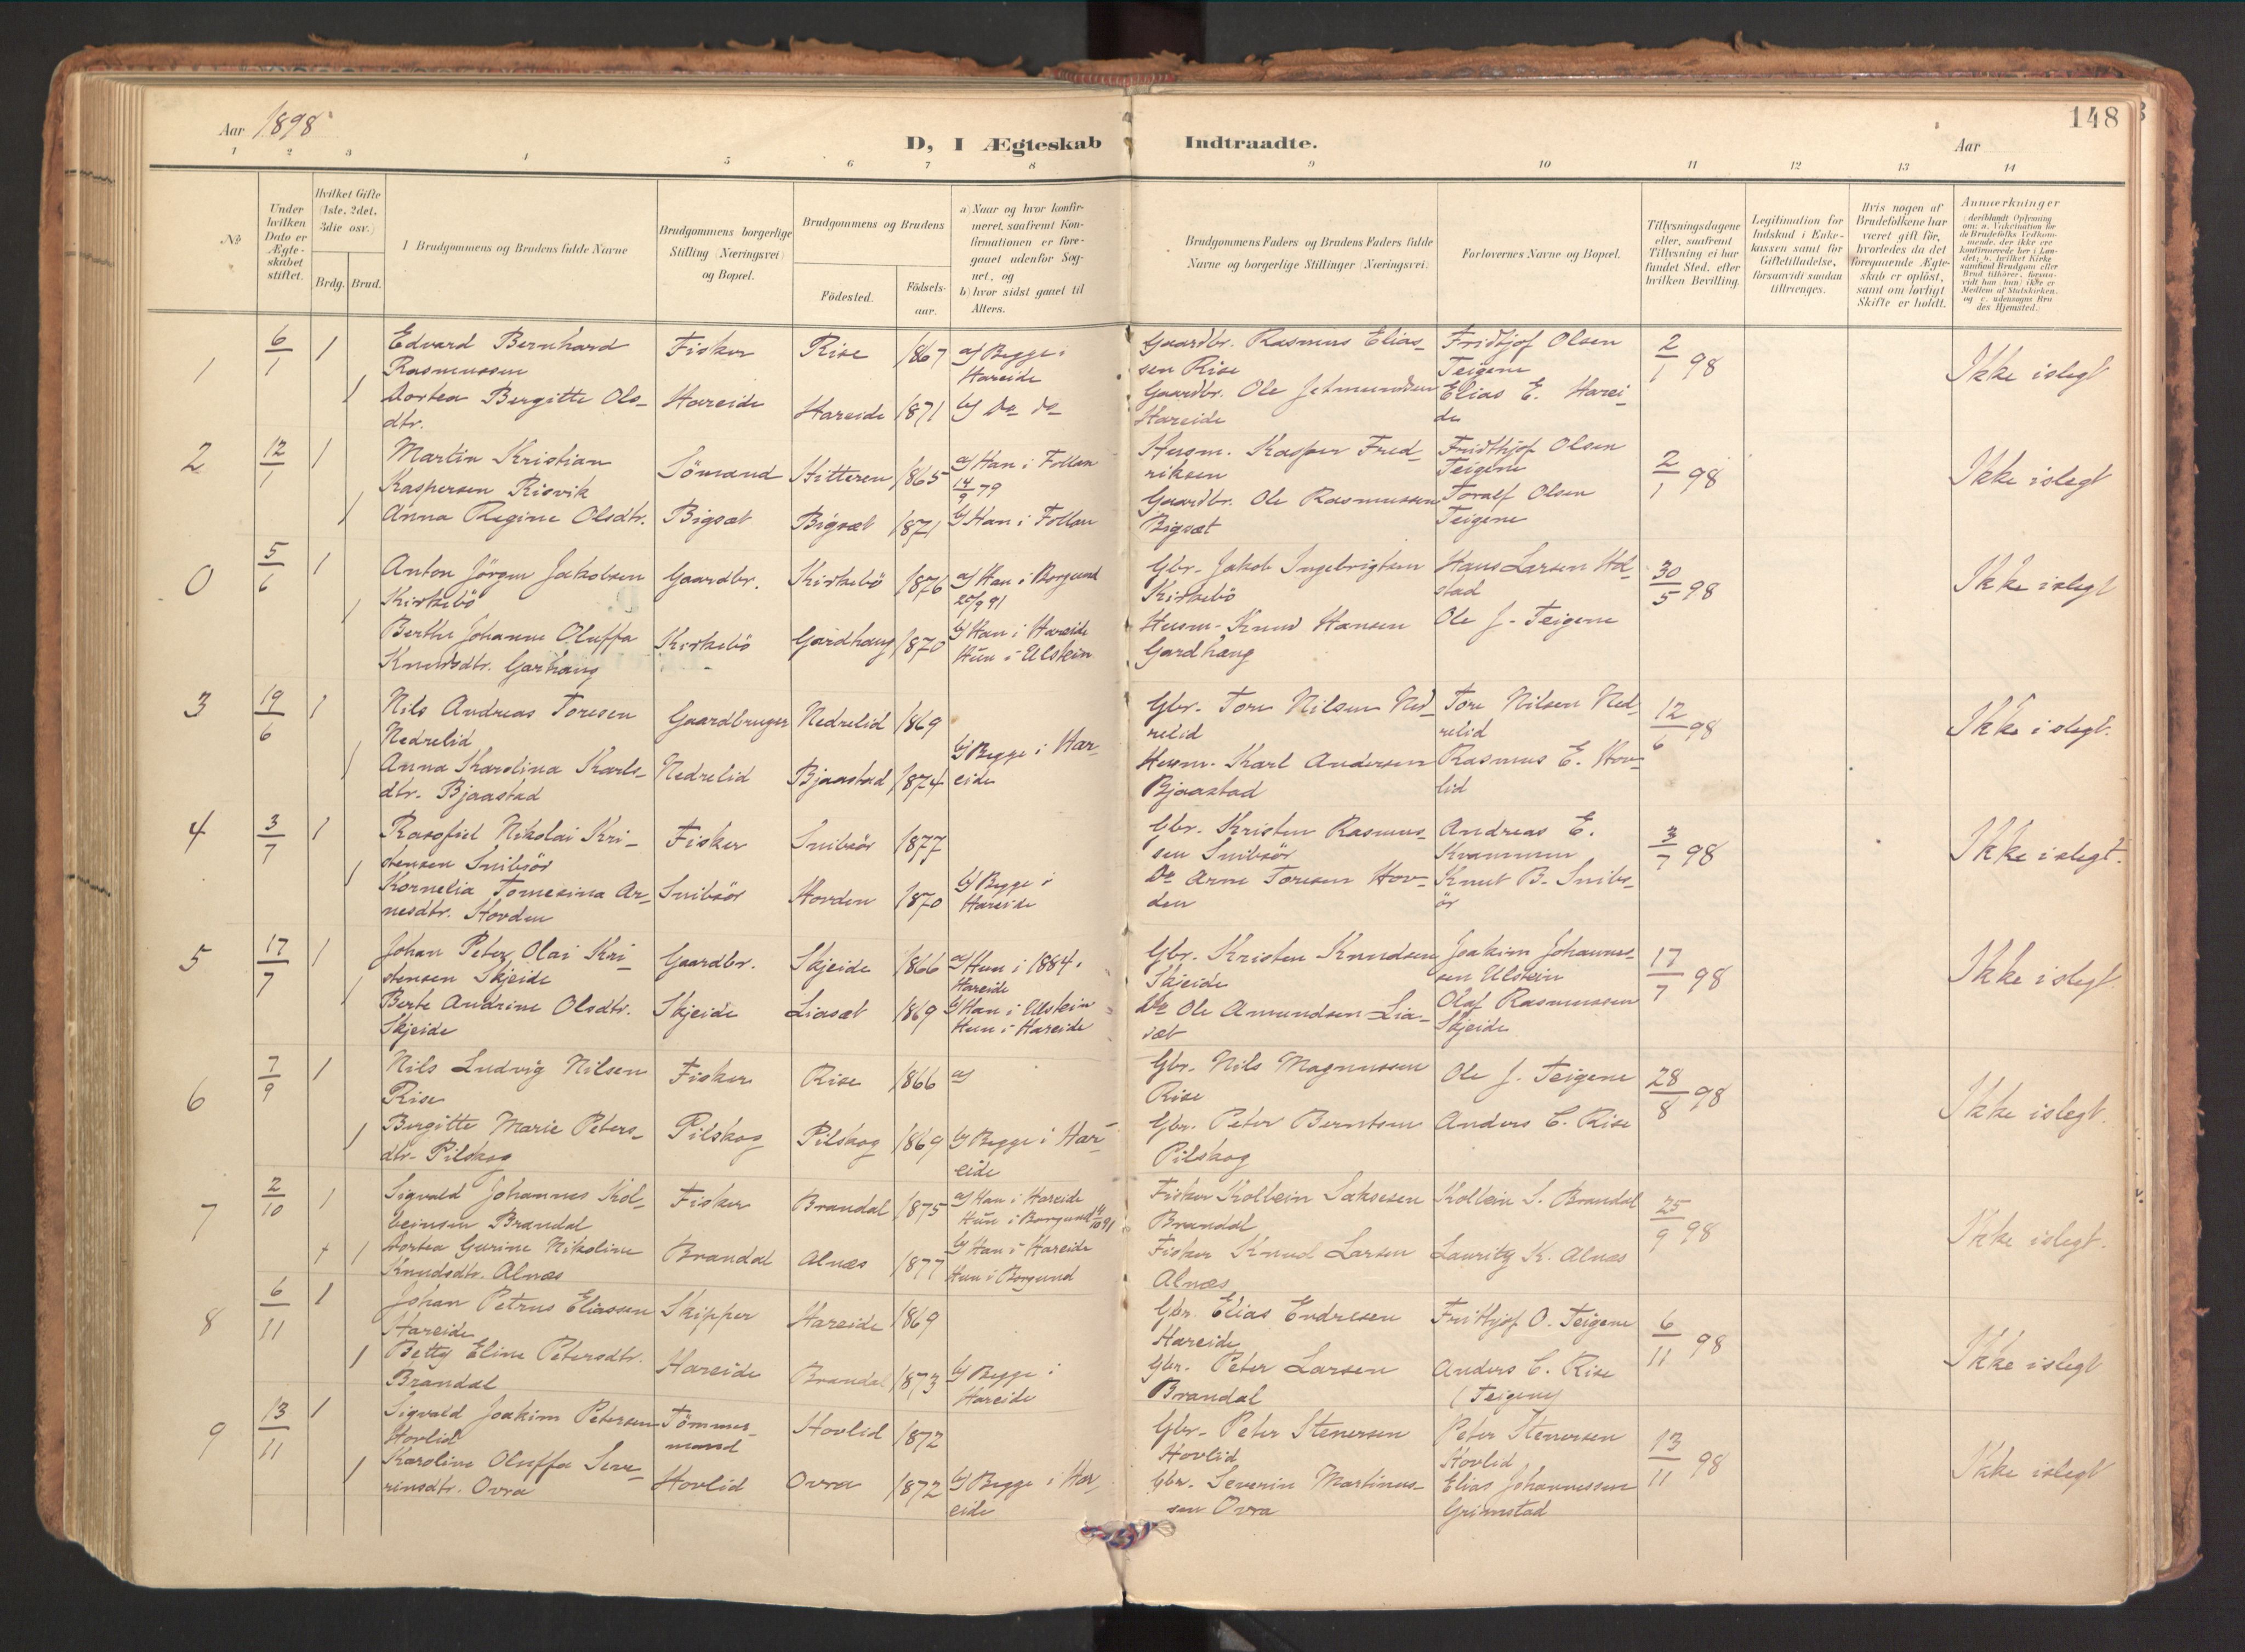 148
Aar 1898
D, I Ægteskab Indtraadte.
Aar
1 2 3 4 5 6 7 8 9 10 11 12 13 14
№
Under hvilken Dato er Ægteskabet stiftet.
Hvilket Gifte (1ste, 2det, 3die osv.)
Brdg. Brud.
Brudgommens og Brudens fulde Navne
Brudgommens borgerlige Stilling (Næringsvei) og Bopæl.
Brudgommens og Brudens
Födested.
Födselsaar.
a) Naar og hvor konfirmeret, saafremt Konfirmationen er foregaaet udenfor Sognet, og
b) hvor sidst gaaet til Alters.
Brudgommens Faders og Brudens Faders fulde Navne og borgerlige Stillinger (Næringsvei).
Forlovernes Navne og Bopæl.
Tillysningsdagene eller, saafremt Tillysning ei har fundet Sted, efter hvilken Bevilling.
Legitimation for Indskud i Enkekassen samt for Giftetilladelse, forsaavidt saadan tiltrænges.
Hvis nogen af Brudefolkene har været gift för, hvorledes da det foregaaende Ægteskab er oplöst, samt om lovligt Skifte er holdt.
Anmerkninger
(deriblandt Oplysning om: a. Vakcination for de Brudefolks Vedkommende, der ikke ere konfirmerede her i Landet; b. hvilket Kirkesamfund Brudgom eller Brud tilhörer, forsaavidt han (hun) ikke er Medlem af Statskirken, og c. udensogns Brudes Hjemsted.)
1 6/1 1 Edvard Bernhard Fisker Rise 1867 a) Begge i Gaardbr. Rasmus Elias- Fridtjof Olsen 2/1 98 Ikke islegt
Rasmussen Hareide sen Rise Teigene
1 Dortea Bergitte Ols- Hareide Hareide 1871 b) Do do Gaardbr. Ole Jetmundsen Elias E. Harei-
dtr. Hareide de
2 12/1 1 Martin Kristian Sömand Hitteren 1865 a) Han i Husm. Kasper Fred- Fridthjof Olsen 2/1 98 Ikke islegt
Kaspersen Risvik 14/9 79 riksen Teigene
1 Anna Regine Olsdtr. Bigsæt Bigsæt 1871 b) Han i Gaardbr. Ole Rasmussen Toralf Olsen
Bigsæt Teigene
0 5/6 1 Anton Jörgen Jakobsen Gaardbr. Kirkebö 1876 a) Han i Borgund Gbr. Jakob Ingebrigtsen Hans Larsen Hol- 30/5 98 Ikke islegt
Kirkebö 20/9 91 Kirkebö stad
1 Berthe Johanne Oluffa Kirkebö Gardhaug 1870 b) Han i Hareide Husm. Knud Hansen Ole J. Teigene
Knudsdtr. Garhaug Hun i Ulstein Gardhaug
3 19/6 1 Nils Andreas Toresen Gaardbruger Nedrelid 1869 Gbr. Tore Nilsen Ned- Tore Nilsen Ned- 12/6 98 Ikke i slegt.
Nedrelid relid relid
1 Anna Karolina Karls- Nedrelid Bjaastad 1874 b) Begge i Har- Husm. Karl Andersen Rasmus E. Hov-
dtr. Bjaastad eide Bjaastad lid
4 3/7 1 Nikolai Kri- Fisker Snibsör 1877 Gbr. Kristen Rasmus- Andreas E. 3/7 98 Ikke islegt.
stensen Snibsör sen Snibsör Kvammen
1 Kornelia Tomesina Ar- Snibsör Hovden 1870 b) Begge i Do Arne Toresen Hov- Knut B. Snibs-
nesdtr. Hovden Hareide den ör
5 17/7 1 Johan Peter Olai Kri- Gaardbr. Skjeide 1866 a) Hun i 1884. Gbr. Kristen Knudsen Joakim Johannes- 17/7 98 Ikke islegt.
stensen Skjeide Hareide Skjeide sen Ulstein
1 Berte Andrine Olsdtr. Skjeide Liasæt 1869 b) Han i Ulstein Do Ole Amundsen Lia- Olaf Rasmussen
Skjeide Hun i Hareide sæt Skjeide
6 7/9 1 Nils Ludvig Nilsen Fisker Rise 1866 a) Gbr. Nils Magnussen Ole J. Teigene 28/8 98 Ikke islegt.
Rise Rise
1 Birgitte Marie Peters- Pilskog Pilskog 1869 b) Begge i Har- Gbr. Peter Berntsen Anders C. Rise
dtr. Pilskog eide Pilskog
7 2/10 1 Sigvald Johannes Kol- Fisker Brandal 1875 a) Han i Hareide Fisker Kolbein Saksesen Kolbein S. Brandal 25/9 98 Ikke islegt.
beinsen Brandal Hun i Borgund 4/10 91 Brandal
+ 1 Dortea Gurine Nikoline Brandal Alnæs 1877 b) Han i Hareide Fisker Knud Larsen Lauritz K. Alnæs
Knudsdtr. Alnæs Hun i Borgund Alnæs
8 6/11 1 Johan Petrus Eliassen Skipper Hareide 1869 Gbr. Elias Endresen Frithjof O. Teigene 6/11 98 Ikke islegt
Hareide Hareide
1 Betty Eline Petersdtr. Hareide Brandal 1873 b) Begge i Gbr. Peter Larsen Anders C. Rise
Brandal Hareide Brandal (Teigene)
9 13/11 1 Sigvald Joakim Petersen Tömmer- Hovlid 1872 Gbr. Peter Stenersen Peter Stenersen 13/11 98 Ikke islegt
Hovlid mand Hovlid Hovlid
1 Karoline Oluffa Seve- Hovlid Ovra 1872 b) Begge i Har- Gbr. Severin Martinus- Elias Johannessen
rinsdtr. Ovra eide sen Ovra Grimstad